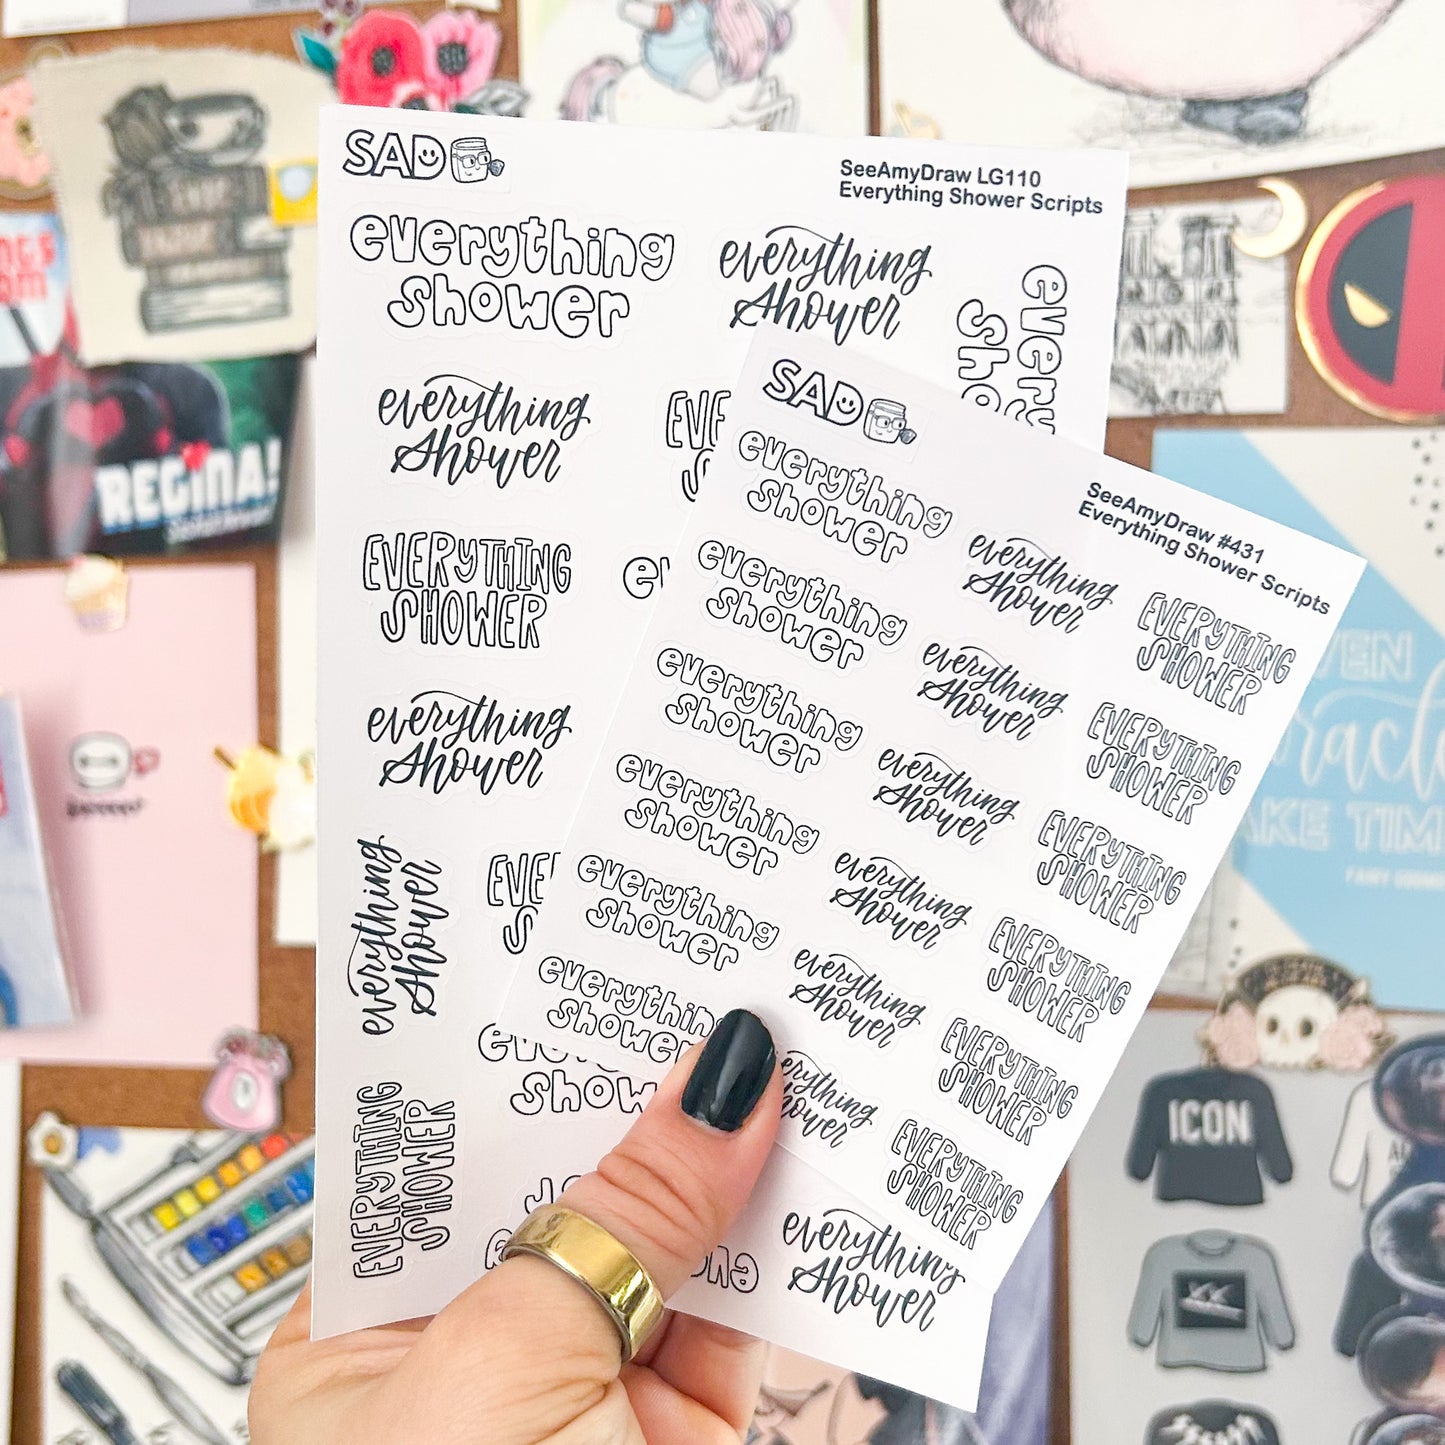 SAD
SeeAmyDraw LG110
Everything Shower Scripts
everything
shower
everything
shower
every
sho
everything
shower
EVE
EVERYTHING
SHOWER
ev
everything
shower
everything
shower
EVE
S
EVERYTHING
SHOWER
show
everything
shower
SAD
SeeAmyDraw #431
Everything Shower Scripts
everything
shower
everything
shower
EVERYTHING
SHOWER
everything
shower
everything
shower
EVERYTHING
SHOWER
everything
shower
everything
shower
EVERYTHING
SHOWER
everything
shower
everything
shower
EVERYTHING
SHOWER
everything
shower
everything
shower
EVERYTHING
SHOWER
everything
shower
everything
shower
EVERYTHING
SHOWER
REGINA!
TIM
ICON